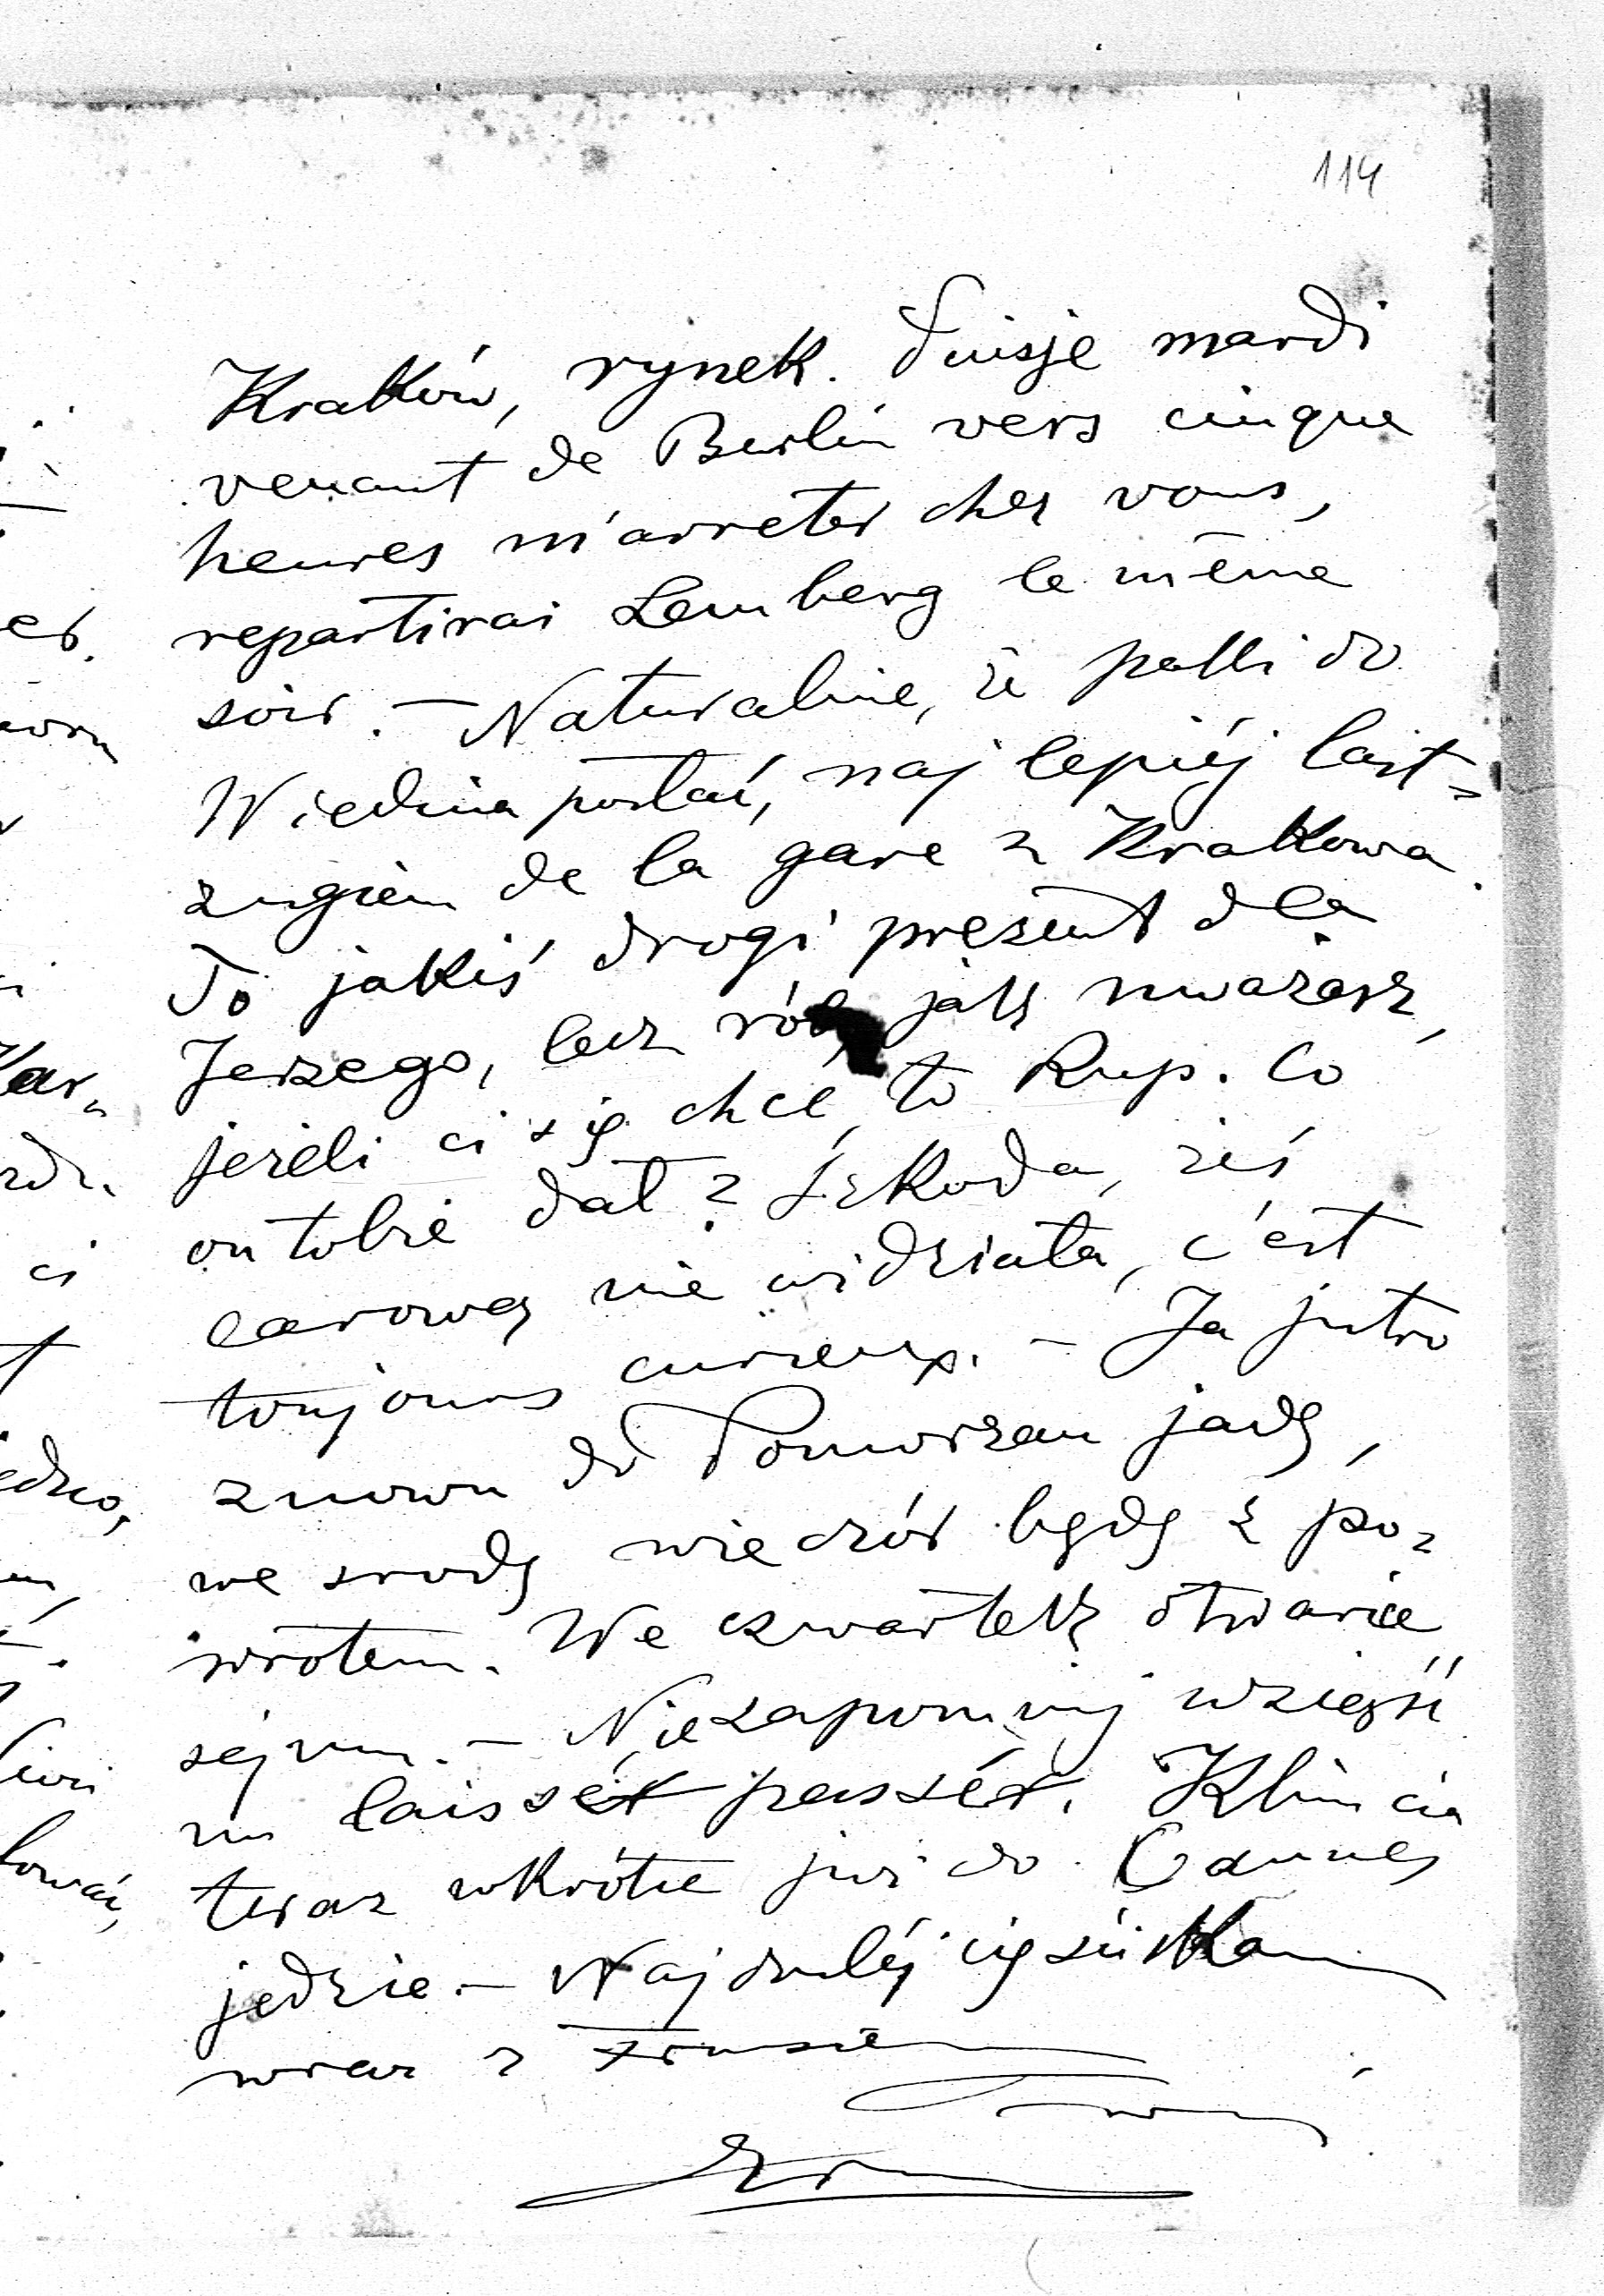 114
Kraków, rynek. Puisje mardi
venant de Berlin vers cinque
heures m'arreter chez vous,
repartirai Lemberg le même
soir. — Naturalnie, że paki do
Wiednia posłać, najlepiéj last=
zugiem de la gare z Krakowa.
To jakiś drogi prezent dla
Jerzego, lecz rób jak uważasz,
jeżeli ci się chcé, to kup. Co
on tobie dał? Szkoda, żeś
carowej nie widziała, c'est
toujours curieux. — Ja jutro
znowu do Pomorzan jadę,
we srodę wieczór będę z po=
wrotem. We czwartek otwarcie
sejmu. — Niezapomnij wziąść
un laissét passét. Klimcia
teraz wkrótce już do Cannes
jedzie. — Najczuléj cię ściskam
wraz z
Twój